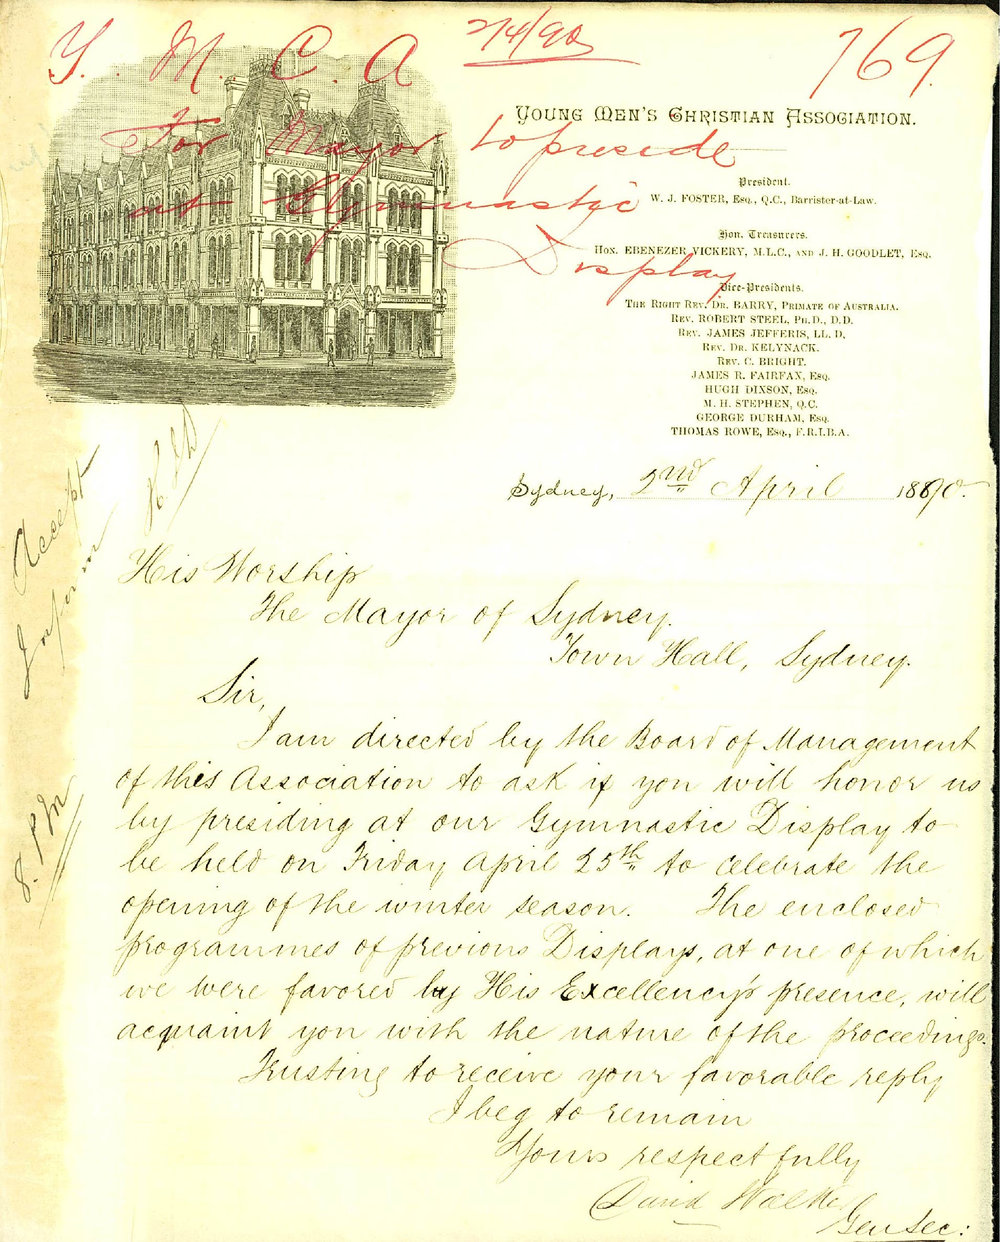 Y. M. C. A
2/4/90
769.
For Mayor to preside
at Gymnastic
Display
YOUNG MEN'S CHRISTIAN ASSOCIATION.
President.
W. J. FOSTER, Esq., Q.C., Barrister-at-Law.
Hon. Treasurers.
HON. EBENEZER VICKERY, M.L.C., AND J. H. GOODLET, ESQ.
Vice-Presidents.
THE RIGHT REV. DR. BARRY, PRIMATE OF AUSTRALIA.
REV. ROBERT STEEL, PH.D., D.D.
REV. JAMES JEFFERIS, LL. D,
REV. DR. KELYNACK.
REV. C. BRIGHT.
JAMES R. FAIRFAX, ESQ.
HUGH DIXSON, ESQ.
M. H. STEPHEN, Q.C.
GEORGE DURHAM, ESQ.
THOMAS ROWE, ESQ., F.R.I.B.A.
Sydney, 2nd April 1890.
Accept
Inform
8. PM
His Worship
The Mayor of Sydney.
Town Hall, Sydney.
Sir,
I am directed by the Board of Management
of this Association to ask if you will honor us
by presiding at our Gymnastic Display to
be held on Friday April 25th to celebrate the
opening of the winter season. The enclosed
programmes of previous Displays, at one of which
we were favored by His Excellency's presence, will
acquaint you with the nature of the proceedings.
Trusting to receive your favorable reply
I beg to remain
Yours respectfully
David Walker
Gen Sec: